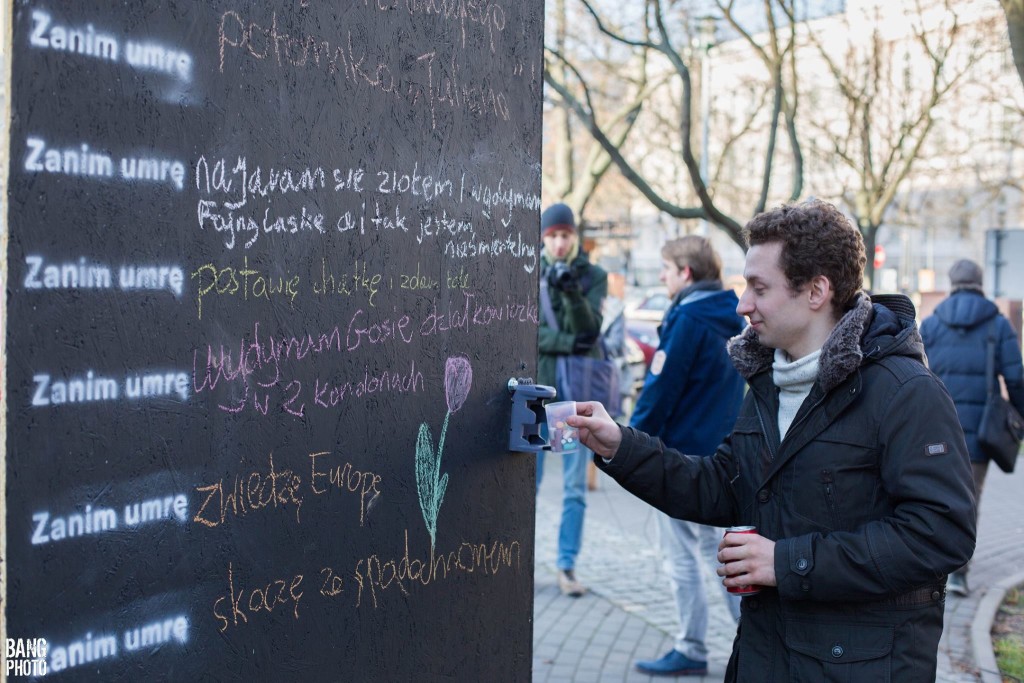 Zanim umrę
potomka
Zanim umrę
najaram się ziołem i wydymam
fajną laskę
a i tak jestem
nieśmiertelny
Zanim umrę
postawię chatkę i
Wydymam Gosię działkowiczkę
w 2 kondonach
Zanim umrę
zwiedzę Europę
Zanim umrę
skoczę ze spadochronem
Zanim umrę
BANG
PHOTO